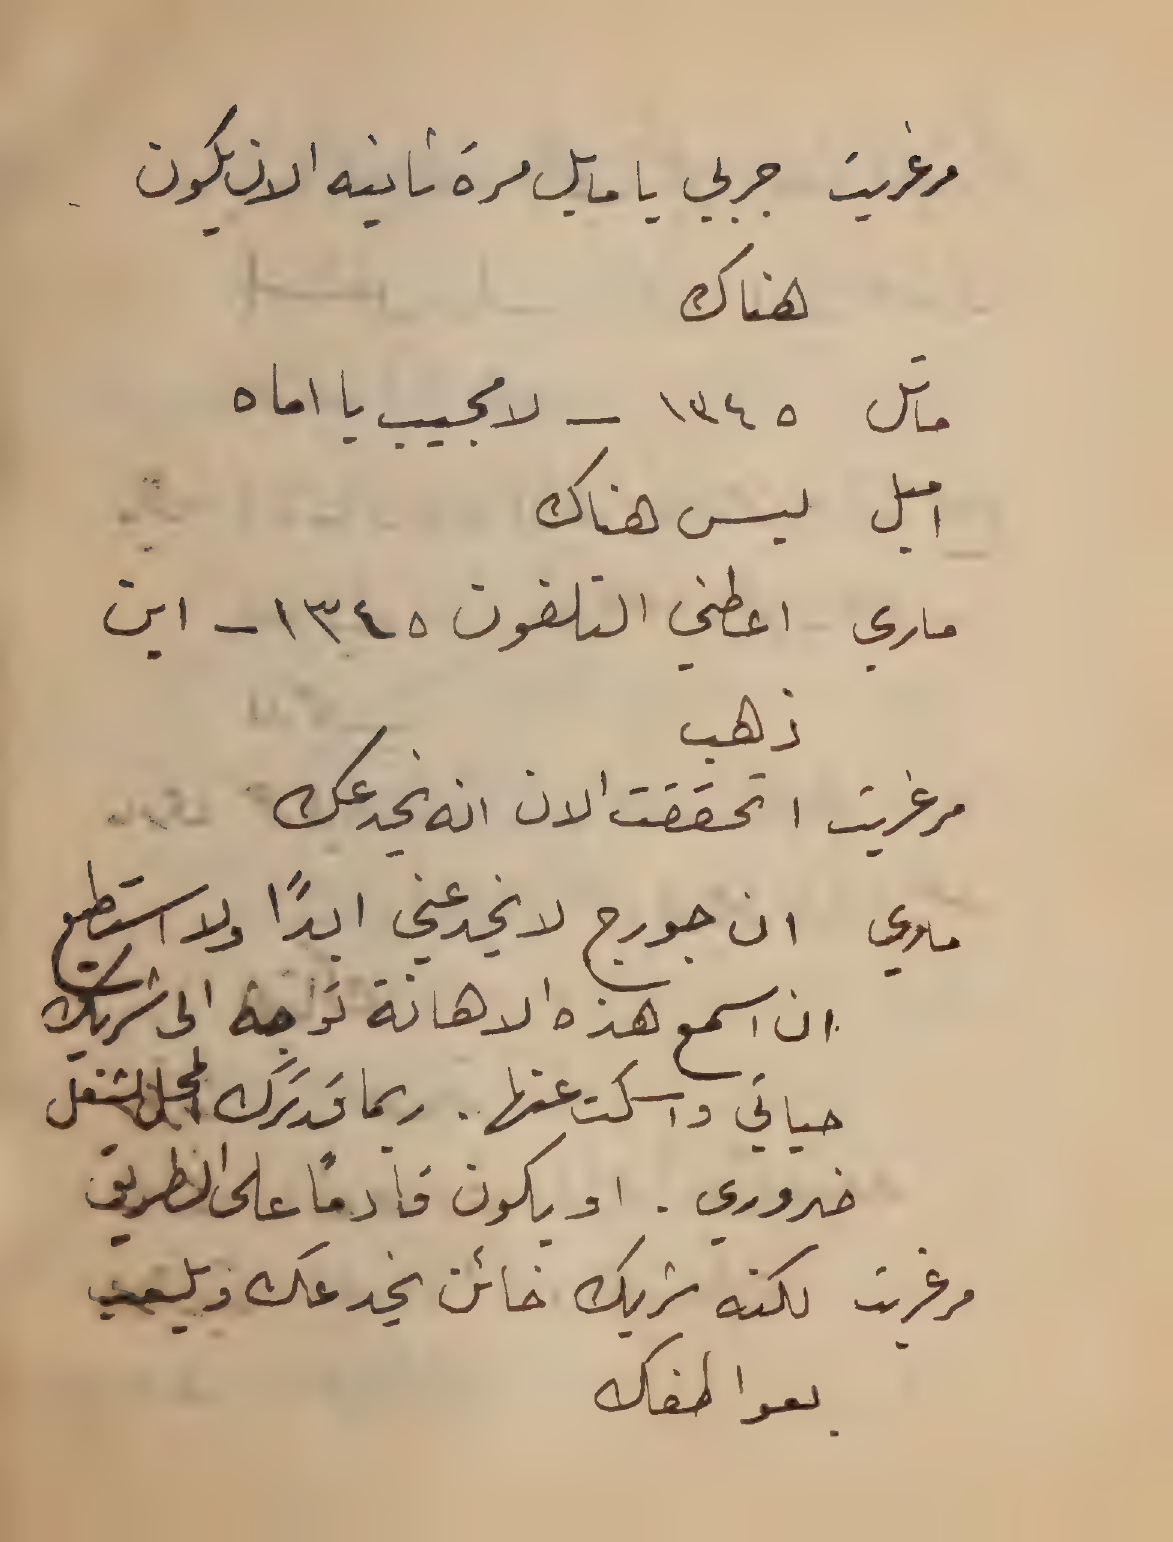 مرغريت جربي يا مايل مرة ثانيه الان يكون
هناك
مايل ١٣٤٥ – لا مجيب يا اماه
اميل ليس هناك
ماري اعطني التلفون ١٣٤٥ – اين
ذهب
مرغريت ا تحققت الان انه يخدعك
ماري ان جورج لا يخدعني ابدًا ولا استطيع
ان اسمع هذه الاهانة توجه الى شريك
حياتي واسكت عنها . ربما قد ترك المحل لشغل
ضروري . او يكون قادمًا على الطريق
مرغريت لكنه شريك خائن يخدعك ويلعب
بعواطفك